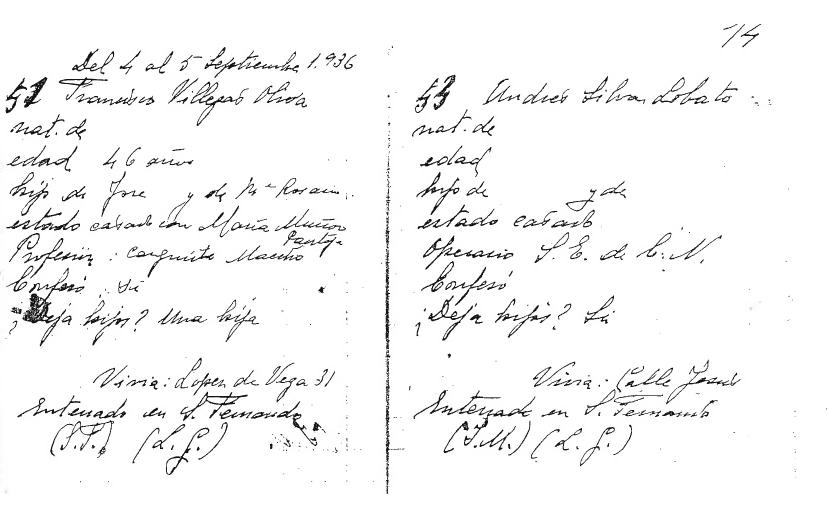 74
Del 4 al 5 Septiembre 1.936
51 Francisco Villegas Oliva
nat. de
edad 46 años
hijo de Jose y de Mª Rosario
estado casado con Maria Muñoz
Pantoja
Profesión: Maestro
Confesó Si
¿Deja hijos? Una hija
Vivia: Lopez de Vega 31
Enterrado en S. Fernando
(S.F.) (L. G.)
Andres Silva Lobato
nat. de
edad
hijo de y de
estado casado
Operario S. E. de C. N.
Confesó
¿Deja hijos? Si
Vivia: Calle Jesus
Enterrado en S. Fernando
(J.M.) (L. G.)